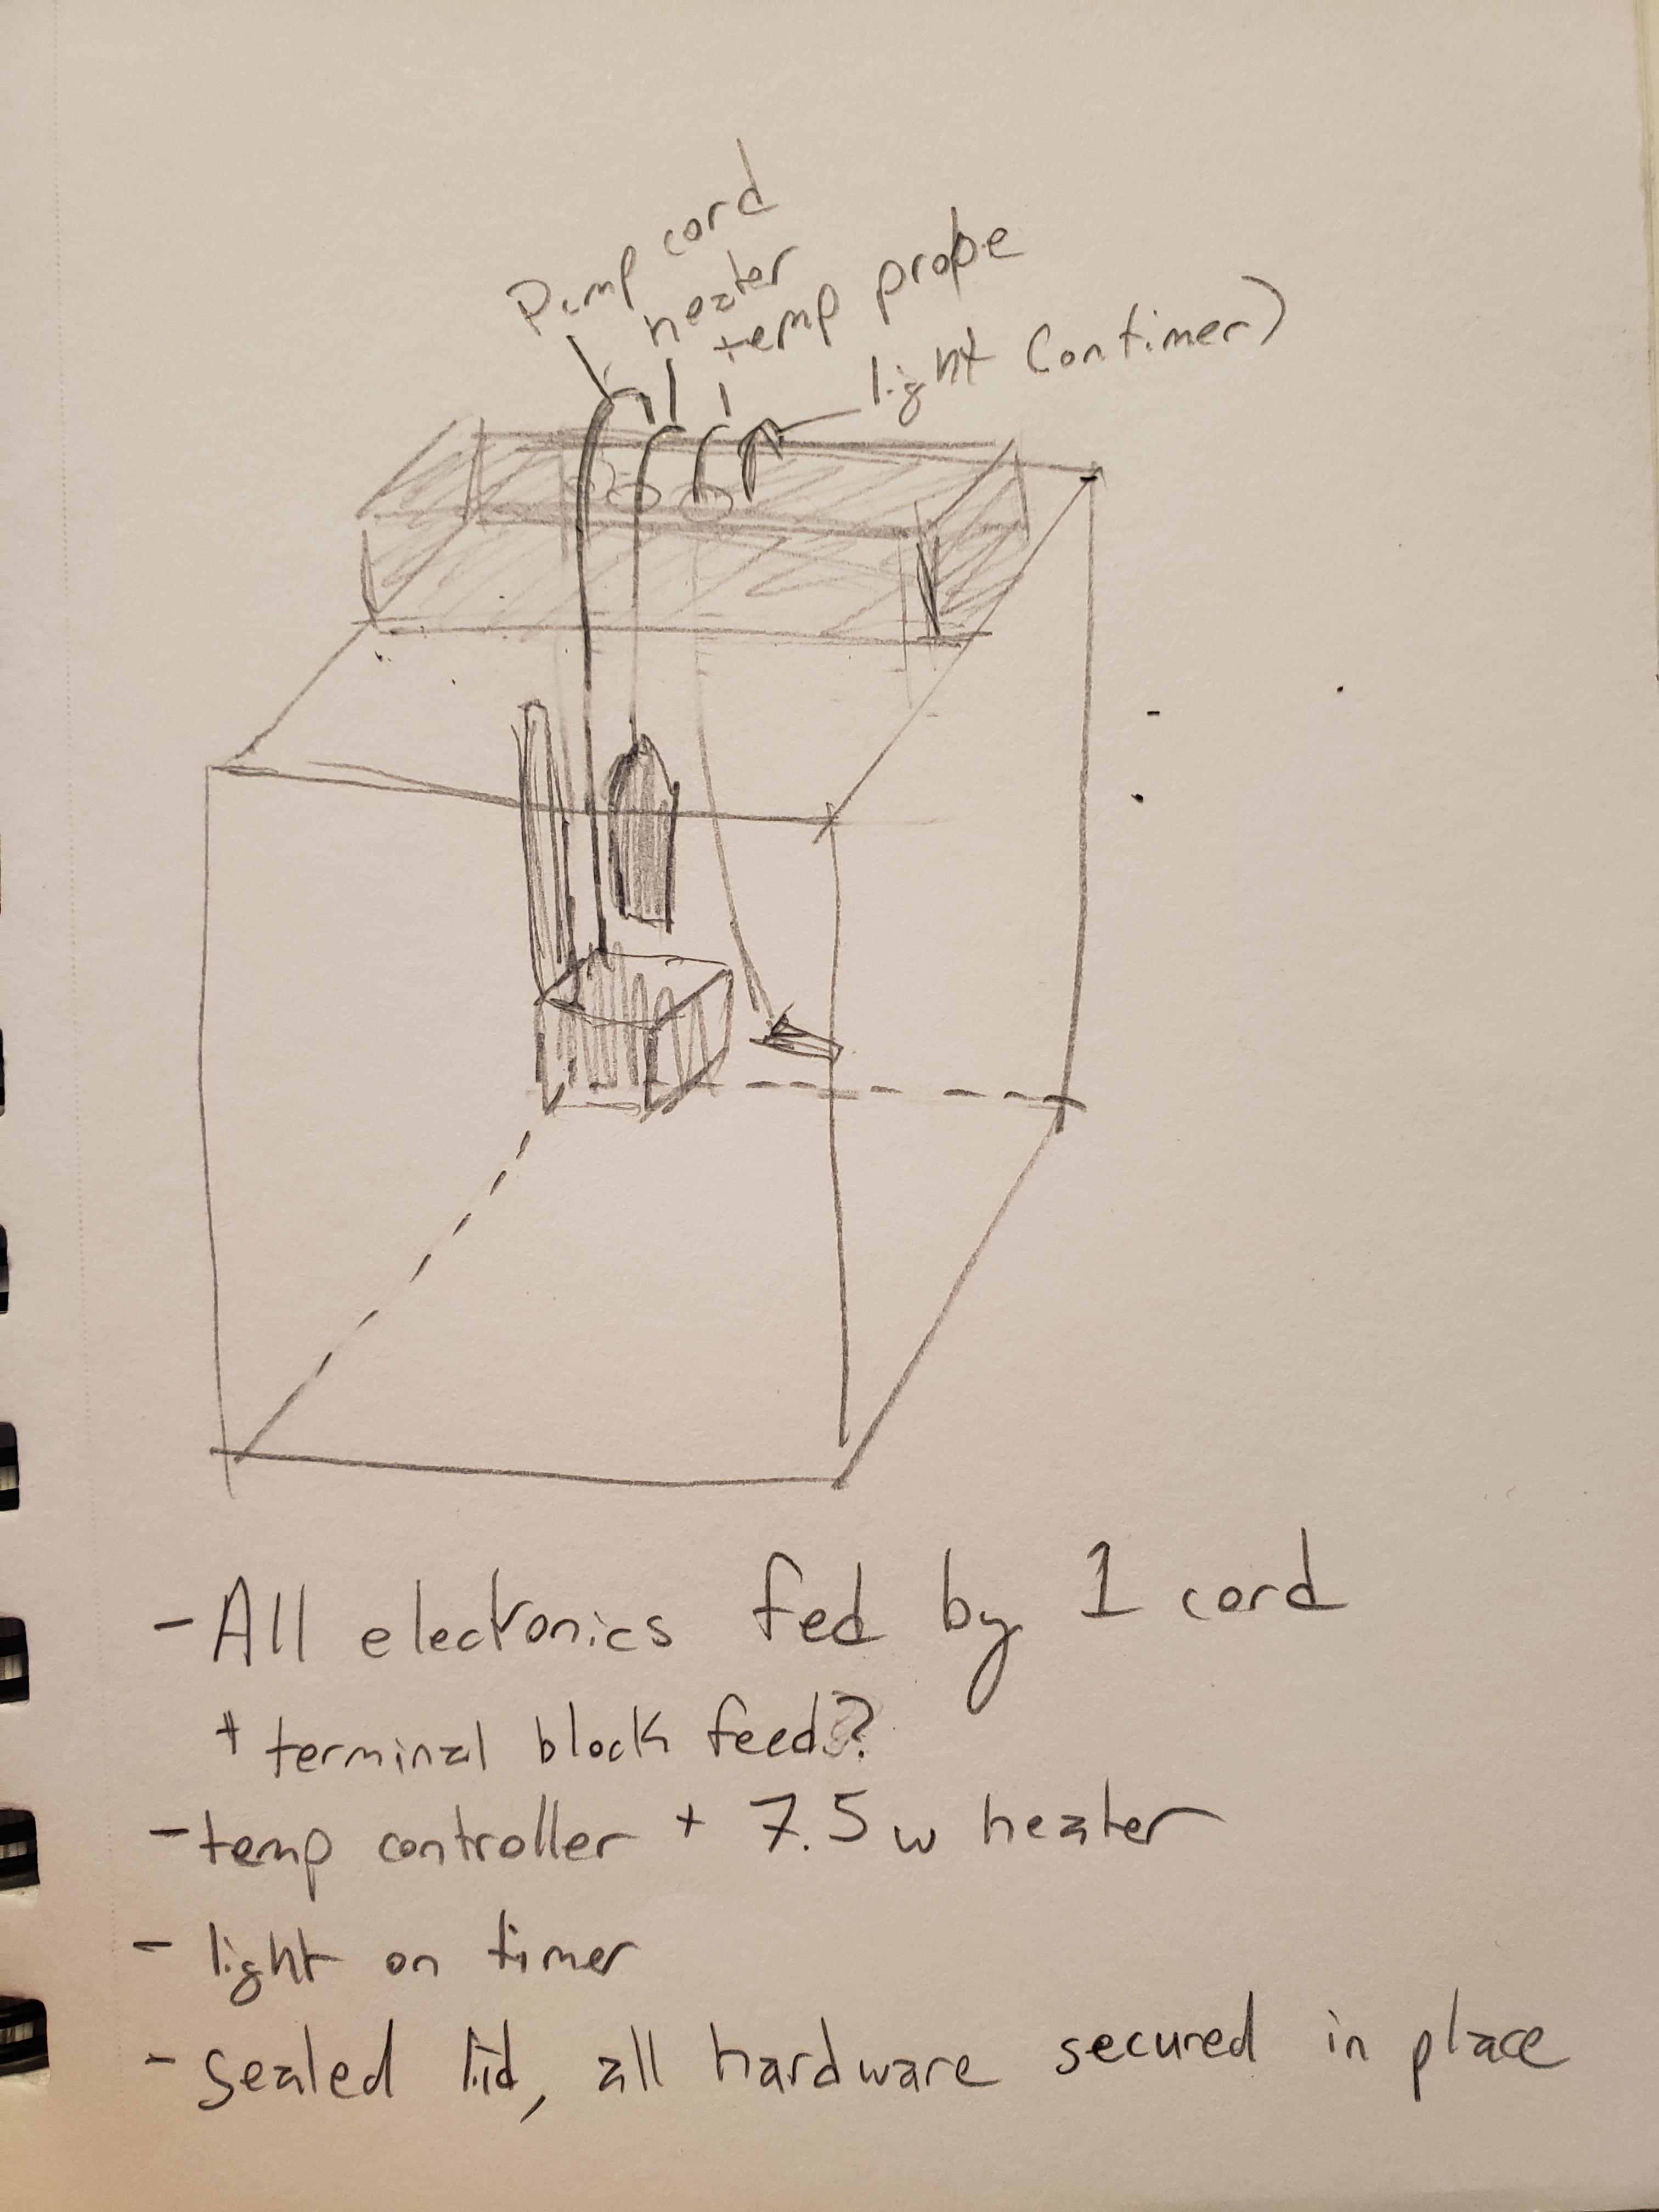 Pump cord
heater
temp probe
light (on timer)
- All electronics fed by 1 cord
+ terminal block feed?
- temp controller + 7.5w heater
- light on timer
- sealed lid, all hardware secured in place